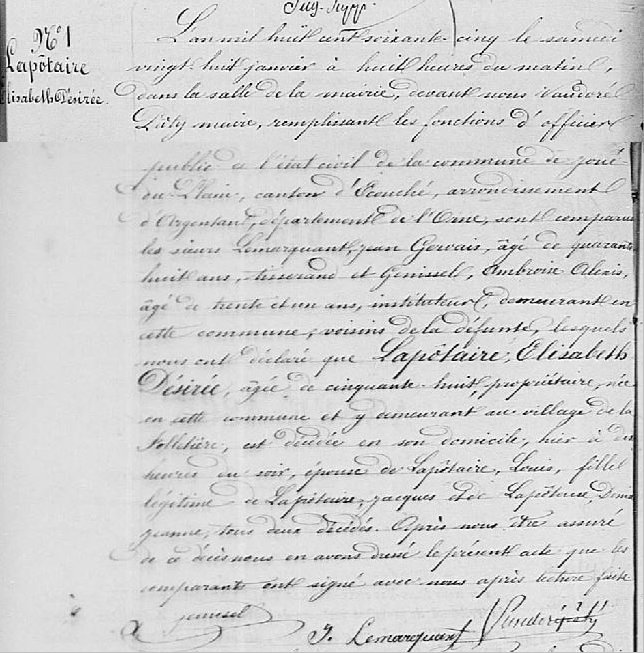 N° 1
Lapôtaire
Elisabeth Désirée.
L'an mil huit cent soixante-cinq le samedi
vingt huit janvier à huit heures du matin,
dans la salle de la mairie, devant nous
maire, remplissant les fonctions d'officier
public de l'état civil de la commune de joué
du Plain, canton d'Ecouché, arrondissement
d'Argentan, département de l'Orne, sont comparus
les sieurs Lemarquant, jean Gervais, âgé de quarante
huit ans, tisserand et Genissel, Ambroise Alexis,
âgé de trente et un ans, instituteur, demeurant en
cette commune, voisins de la défunte, lesquels
nous ont déclaré que Lapôtaire, Elisabeth
Désirée, âgée de cinquante-huit, propriétaire, née
en cette commune et y demeurant au village de la
est décédée en son domicile, hier à dix
heures du soir, épouse de Lapôtaire, Louis, fille
légitime de Lapôtaire, jacques et de
jeanne, tous deux décédés. Après nous être assuré
de ce décès nous en avons dressé le présent acte que les
comparants ont signé avec nous après lecture faite
genissel
J. Lemarquant